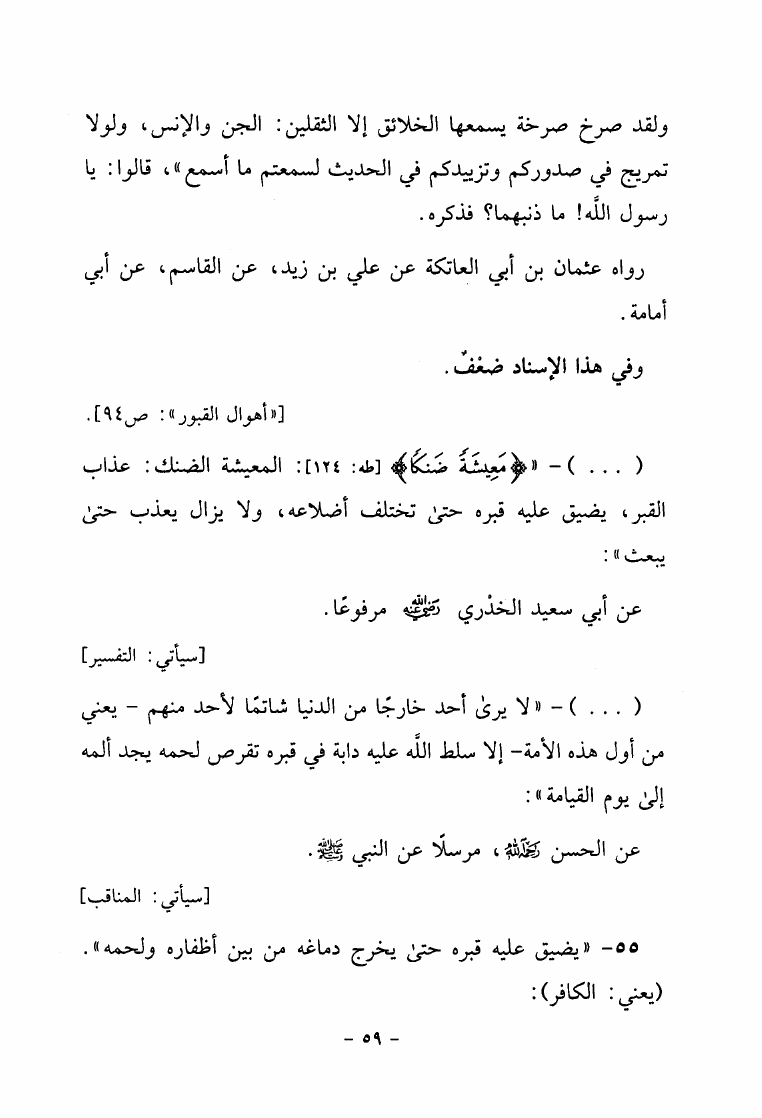 ولقد صرخ صرخة يسمعها الخلائق إلا الثقلين: الجن والإنس، ولولا
تمريج في صدوركم وتزييدكم في الحديث لسمعتم ما أسمع»، قالوا: يا
رسول اللَّه! ما ذنبهما؟ فذكره.
رواه عثمان بن أبي العاتكة عن علي بن زيد، عن القاسم، عن أبي
أمامة.
وفي هذا الإسناد ضَعْفٌ.
[«أهوال القبور»: ص٩٤].
( ... )- «﴿مَعِيشَةً ضَنكًا﴾ [طه: ١٢٤]: المعيشة الضنك: عذاب
القبر، يضيق عليه قبره حتىٰ تختلف أضلاعه، ولا يزال يعذب حتىٰ
يبعث»:
عن أبي سعيد الخدْري رَضِيَ اللَّهُ عَنْهُ مرفوعًا.
[سيأتي: التفسير]
( ... )- «لا يرىٰ أحد خارجًا من الدنيا شاتمًا لأحد منهم - يعني
من أول هذه الأمة- إلا سلط اللَّه عليه دابة في قبره تقرص لحمه يجد ألمه
إلىٰ يوم القيامة»:
عن الحسن رَحِمَهُ اللَّهُ، مرسلًا عن النبي ﷺ.
[سيأتي: المناقب]
٥٥- «يضيق عليه قبره حتىٰ يخرج دماغه من بين أظفاره ولحمه».
(يعني: الكافر):
- ٥٩ -